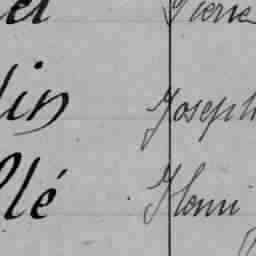 Pierre
lin Joseph
llé Henri